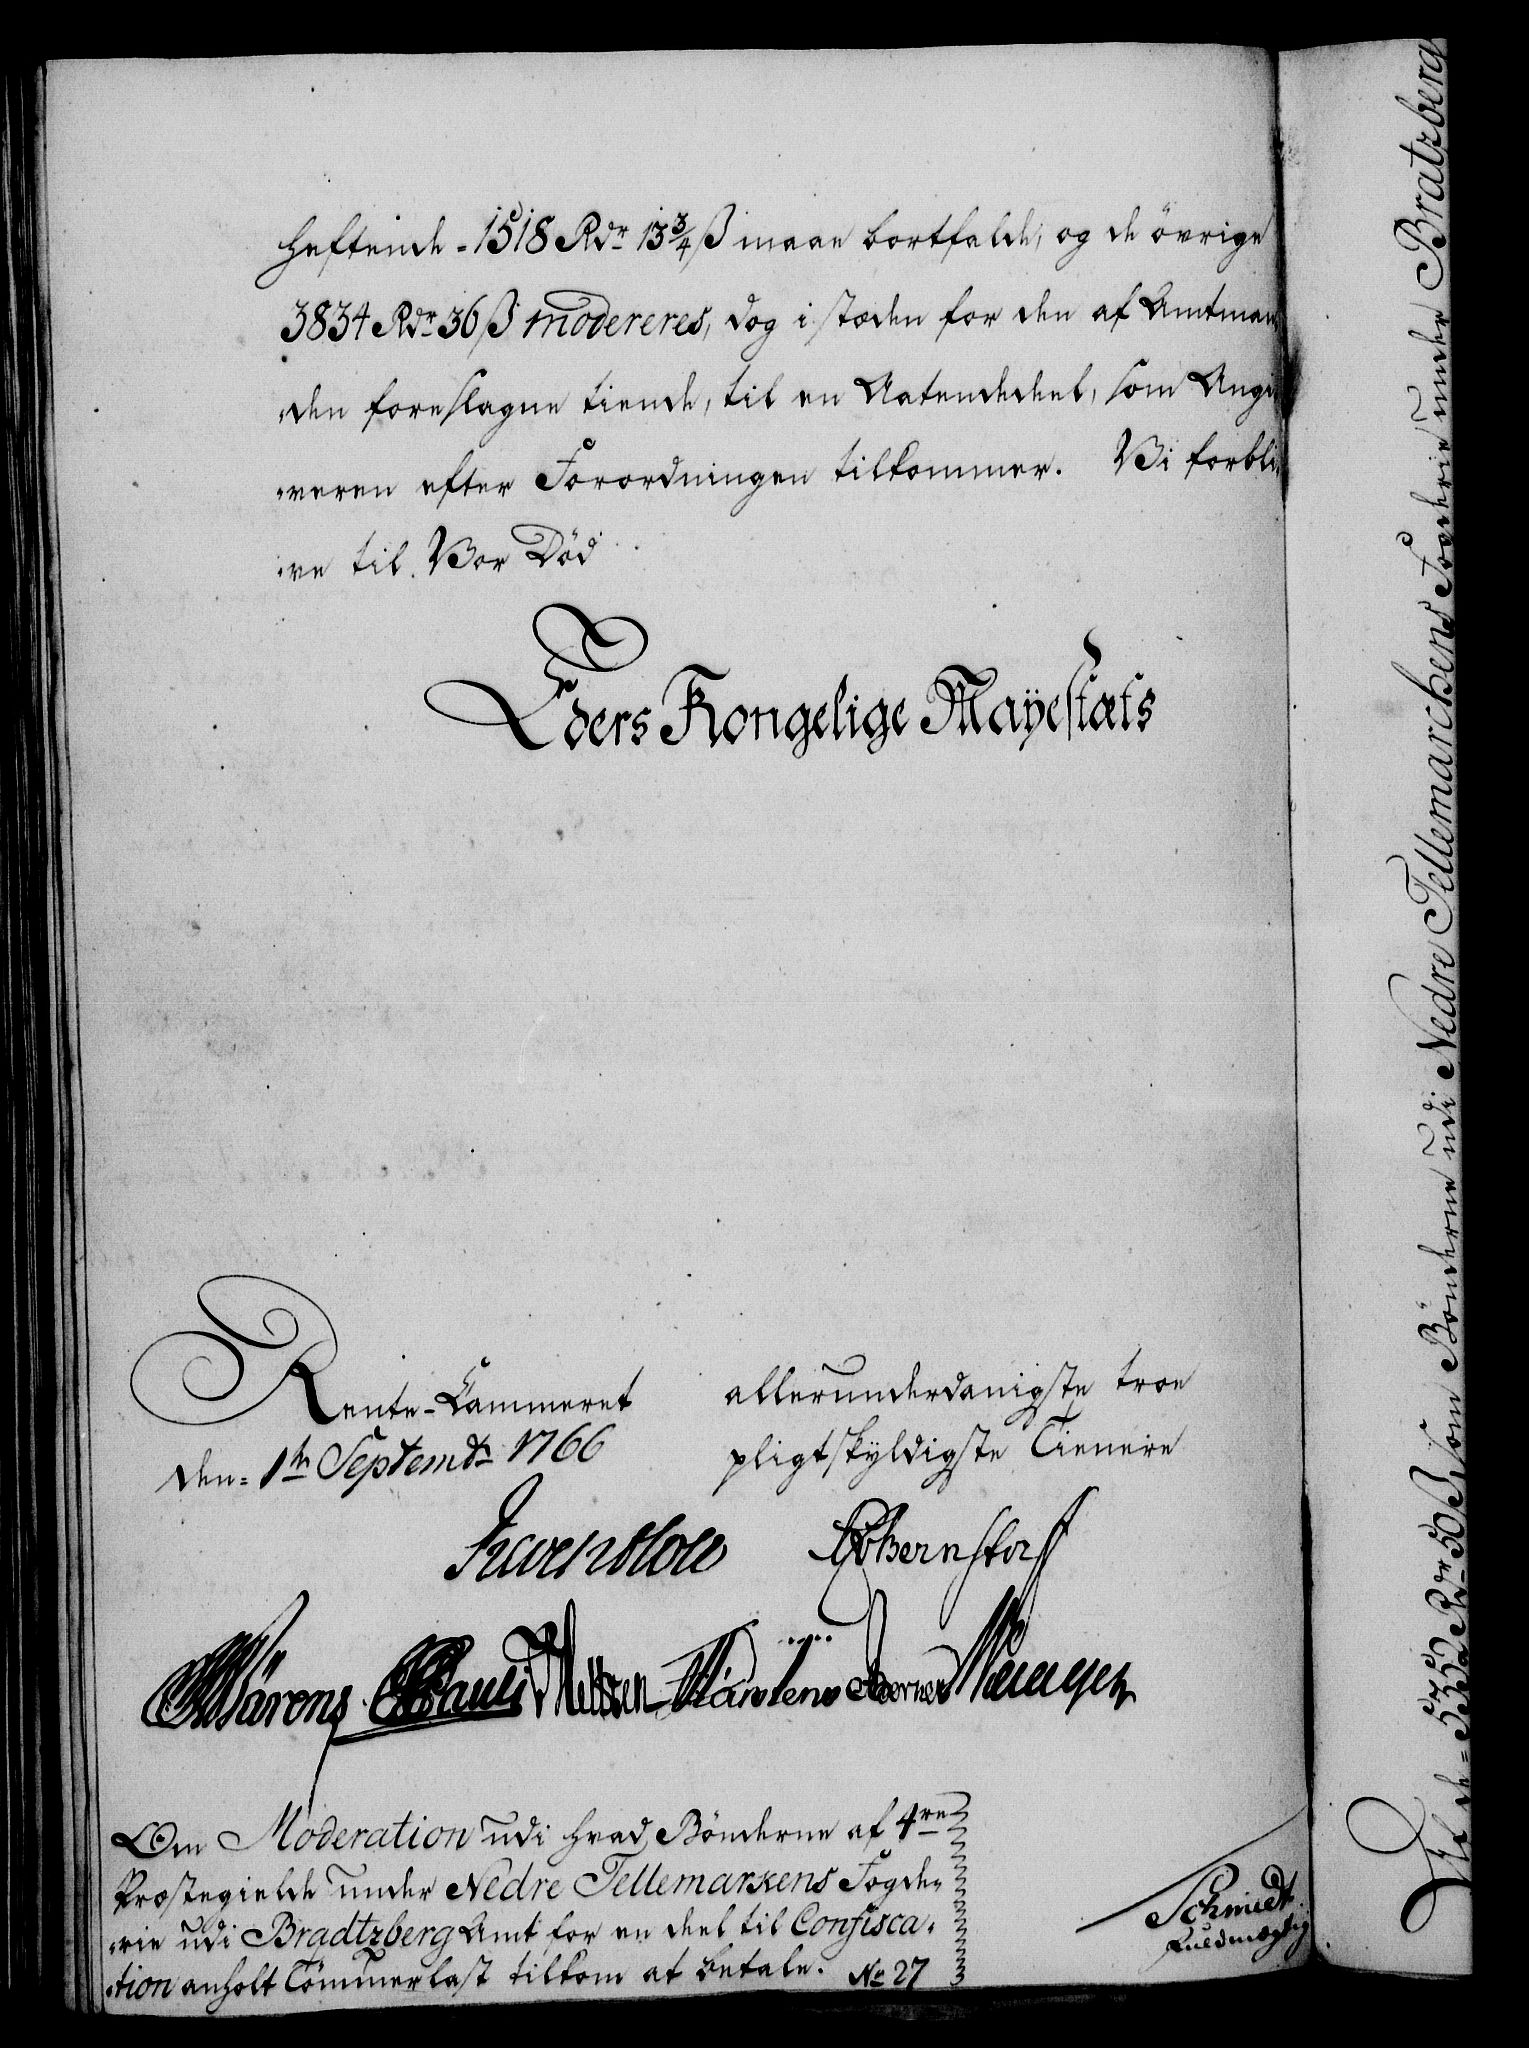 heftende - 1518 Rdr 13¾ ß maae bortfalde, og de övrige
3834 Rdr 36 ß modereres, dog i stæden for den af Amtman-
den foreslagne tiende, til en Aatendedeel, som Angi-
veren efter Forordningen tilkommer. Vi forbli-
ve til Vor Död
Eders Kongelige Mayestæts
Rente-Cammeret
den 1te Septembr 1766
allerunderdanigste troe
pligtskyldigste Tienere
Bernstorff
Wärens Pauli
Om Moderation udi hvad Bönderne af 4re
Præstegielde under Nedre Tellemarkens Fogde-
rie udi Bradtzberg Amt for en deel til Confisca-
tion anholt Tömmerlast tilkom at betale. No 27
Schmiedt
Fuldmægtig
5352 Rdr 50 ß, som Bönderne udi Nedre Tellemarckens Fogderie under Bratzberg